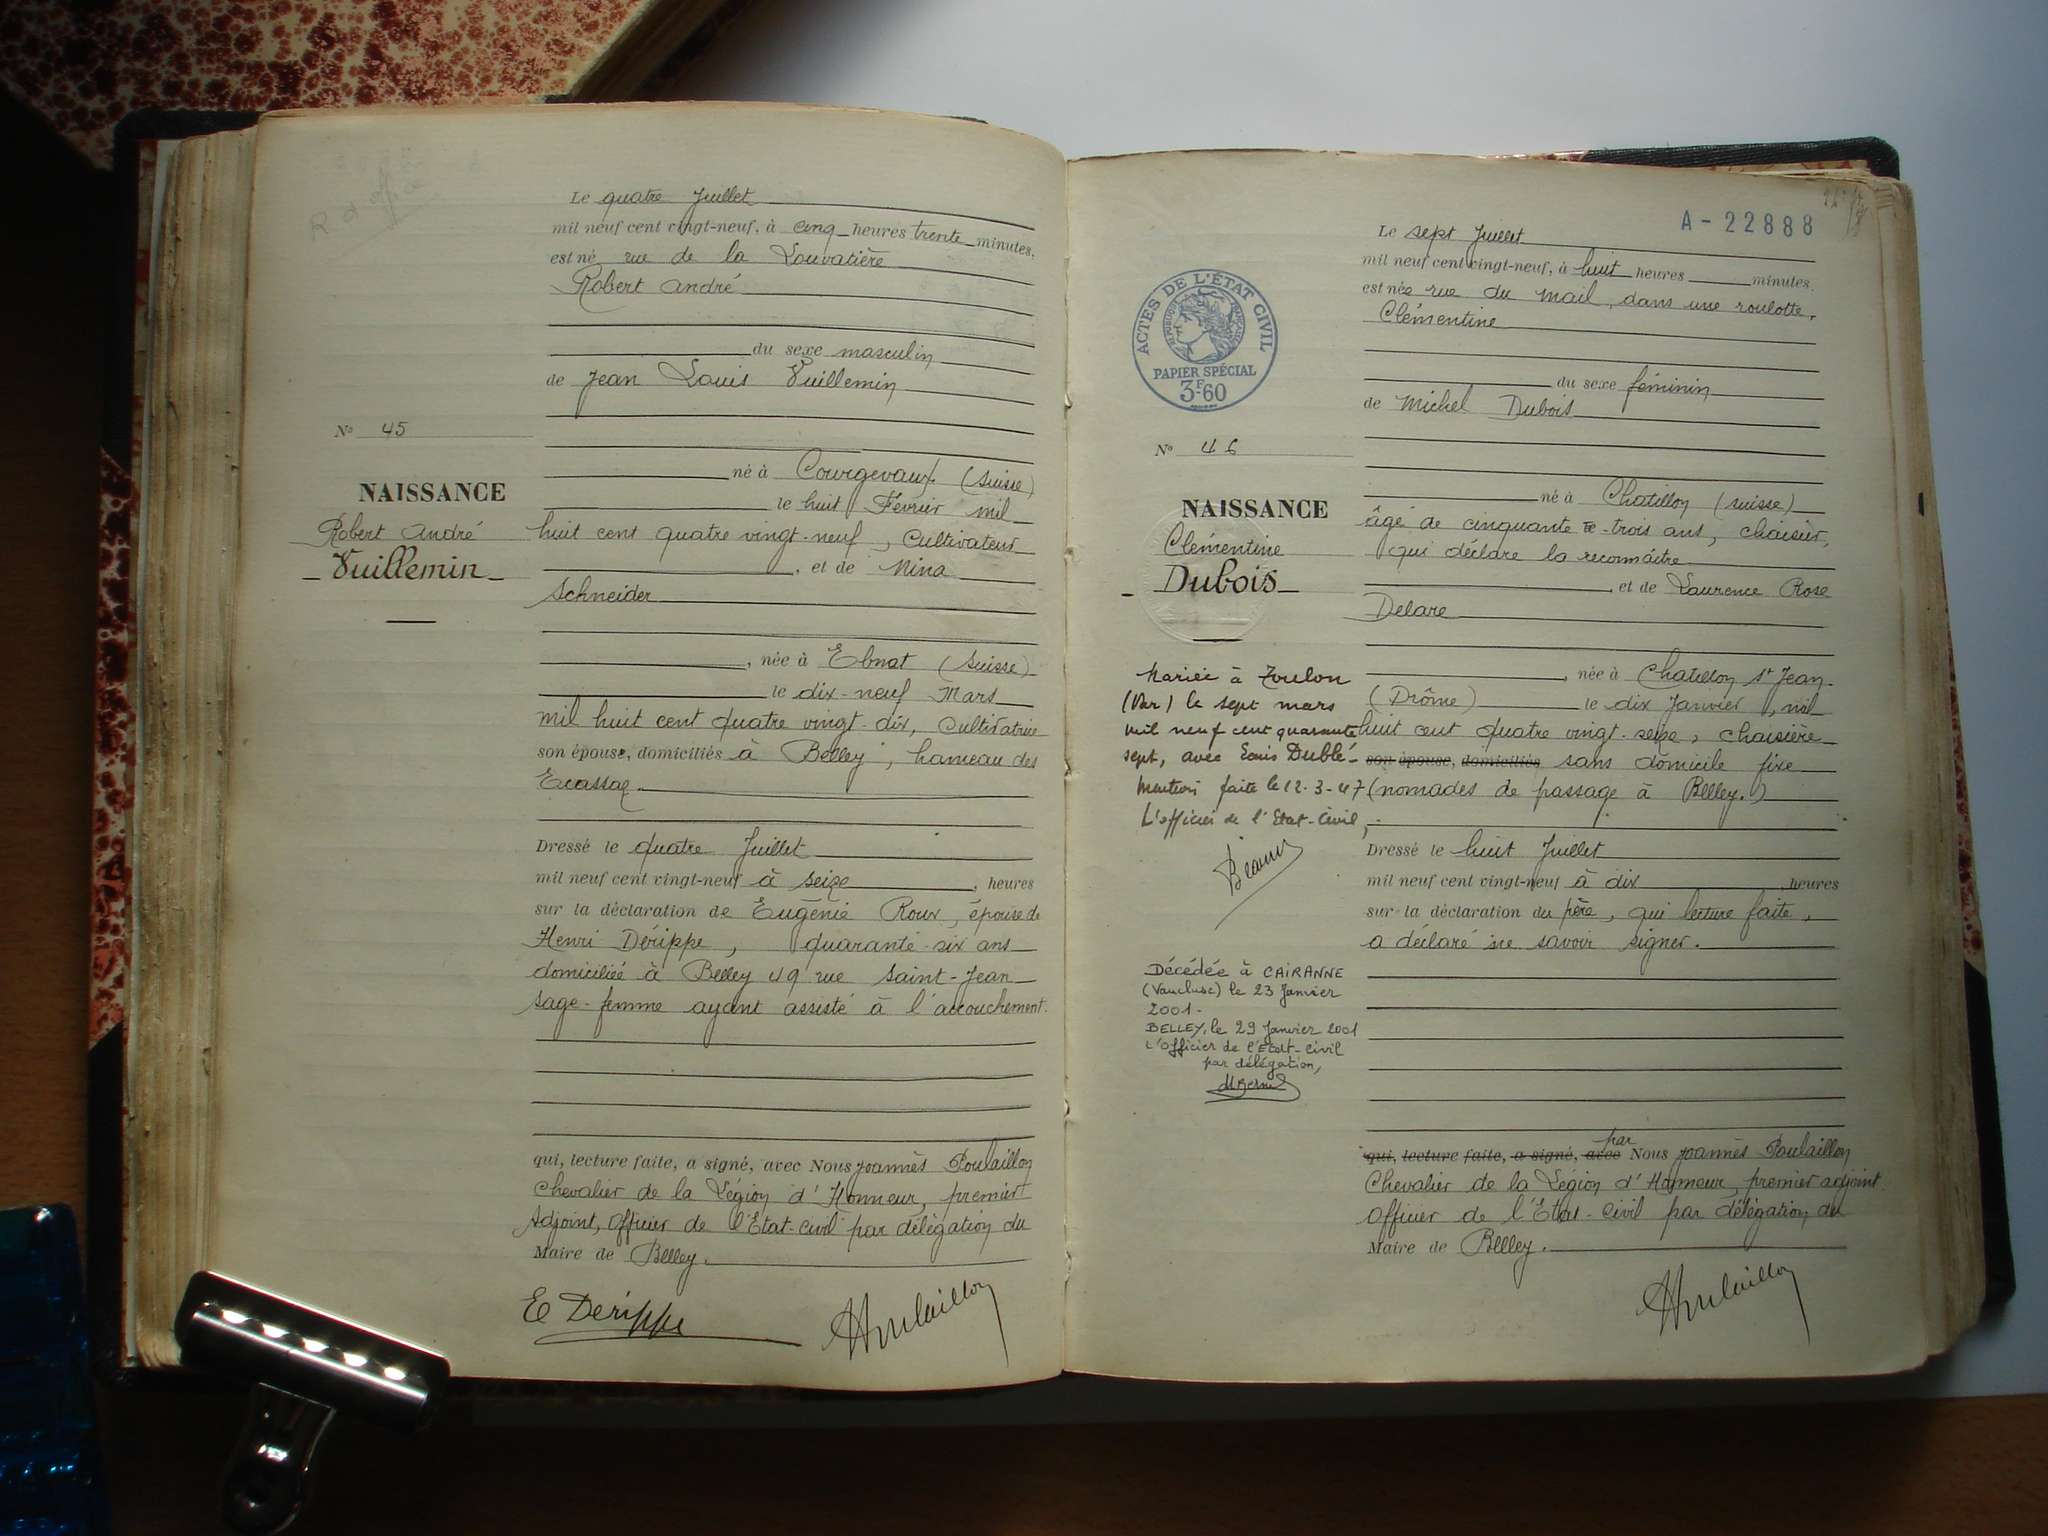 R d office
Le quatre Juillet
mil neuf cent vingt-neuf, à cinq heures trente minutes,
est né rue de la Louvatière
Robert André
du sexe masculin
de Jean Louis Vuillemin
né à Courgevaux (Suisse)
le huit Février mil
huit cent quatre vingt-neuf, cultivateur
, et de Nina
Schneider
, née à Ebnat (Suisse)
le dix-neuf Mars
mil huit cent quatre vingt-dix, cultivatrice
son épouse, domiciliés à Belley, hameau des
Ecassaz
Dressé le quatre Juillet
mil neuf cent vingt-neuf à seize, heures
sur la déclaration de Eugénie Roux, épouse de
Henri Dérippe, quarante-six ans
domiciliée à Belley 49 rue Saint-Jean
sage-femme ayant assisté à l'accouchement.
qui, lecture faite, a signé, avec Nous Joannès Poulaillon
Chevalier de la Légion d'Honneur, premier
Adjoint, Officier de l'Etat-Civil par délégation du
Maire de Belley.
E Derippe
Poulaillon
No 45
NAISSANCE
Robert André
Vuillemin
A-22888
Le sept Juillet
mil neuf cent vingt-neuf, à huit heures minutes.
est née rue du Mail, dans une roulotte,
Clémentine
du sexe féminin
de Michel Dubois
né à Chatillon (Suisse)
âgé de cinquante-trois ans, chaisier,
qui déclare la reconnaître
, et de Laurence Rose
Delare
, née à Chatillon St Jean
(Drôme) le dix Janvier, mil
huit cent quatre vingt-seize, chaisière
son épouse, domiciliés sans domicile fixe
(nomades de passage à Belley.)
Dressé le huit Juillet
mil neuf cent vingt-neuf à dix heures
sur la déclaration du père, qui lecture faite,
a déclaré ne savoir signer.
par
qui, lecture faite, a signé, avec Nous Joannès Poulaillon
Chevalier de la Légion d'Honneur, premier adjoint
Officier de l'Etat-Civil par délégation du
Maire de Belley.
Poulaillon
ACTES DE L'ÉTAT CIVIL
RÉPUBLIQUE FRANÇAISE
PAPIER SPÉCIAL
3F60
No 46
NAISSANCE
Clémentine
Dubois
Mariée à Toulon
(Var) le sept mars
mil neuf cent quarante
sept, avec Louis Dublé
Mention faite le 12-3-47
L'officier de l'Etat-Civil,
Décédée à CAIRANNE
(Vaucluse) le 23 Janvier
2001.
BELLEY, le 29 Janvier 2001
L'officier de l'Etat-Civil
par délégation,